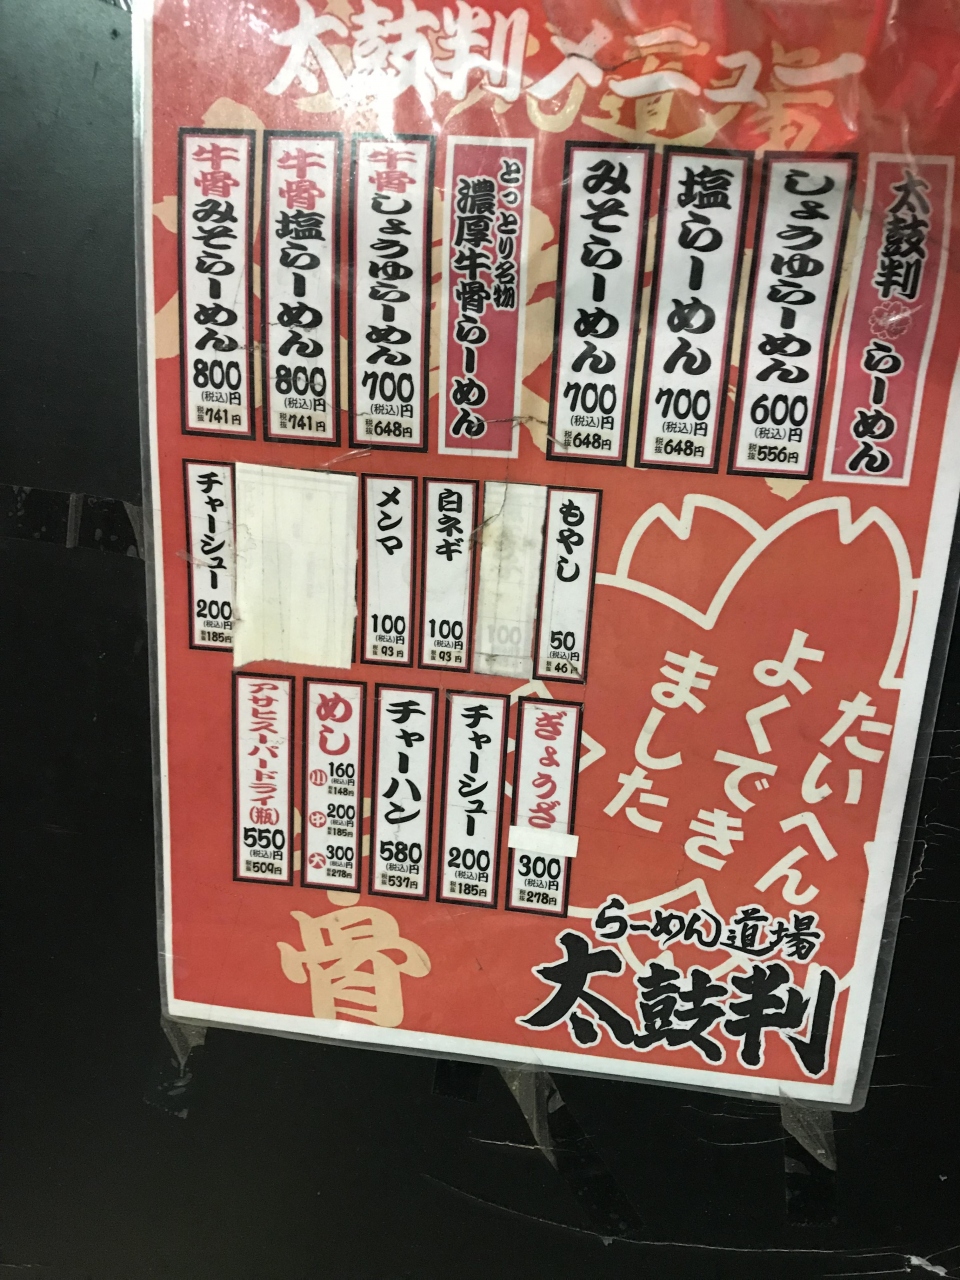 太鼓判メニュー
太鼓判らーめん
しょうゆらーめん
600
(税込)円
税抜556円
塩らーめん
700
(税込)円
税抜648円
みそらーめん
700
(税込)円
税抜648円
とっとり名物
濃厚牛骨らーめん
牛骨しょうゆらーめん
700
(税込)円
税抜648円
牛骨塩らーめん
800
(税込)円
税抜741円
牛骨みそらーめん
800
(税込)円
税抜741円
もやし
50
(税込)円
税抜46円
白ネギ
100
(税込)円
税抜93円
メンマ
100
(税込)円
税抜93円
チャーシュー
200
(税込)円
税抜185円
ぎょうざ
300
(税込)円
税抜278円
チャーシュー
200
(税込)円
税抜185円
チャーハン
580
(税込)円
税抜537円
めし
小 160
(税込)円
税抜148円
中 200
(税込)円
税抜185円
大 300
(税込)円
税抜278円
アサヒスーパードライ(瓶)
550
(税込)円
税抜509円
たいへん
よくでき
ました
骨
らーめん道場
太鼓判